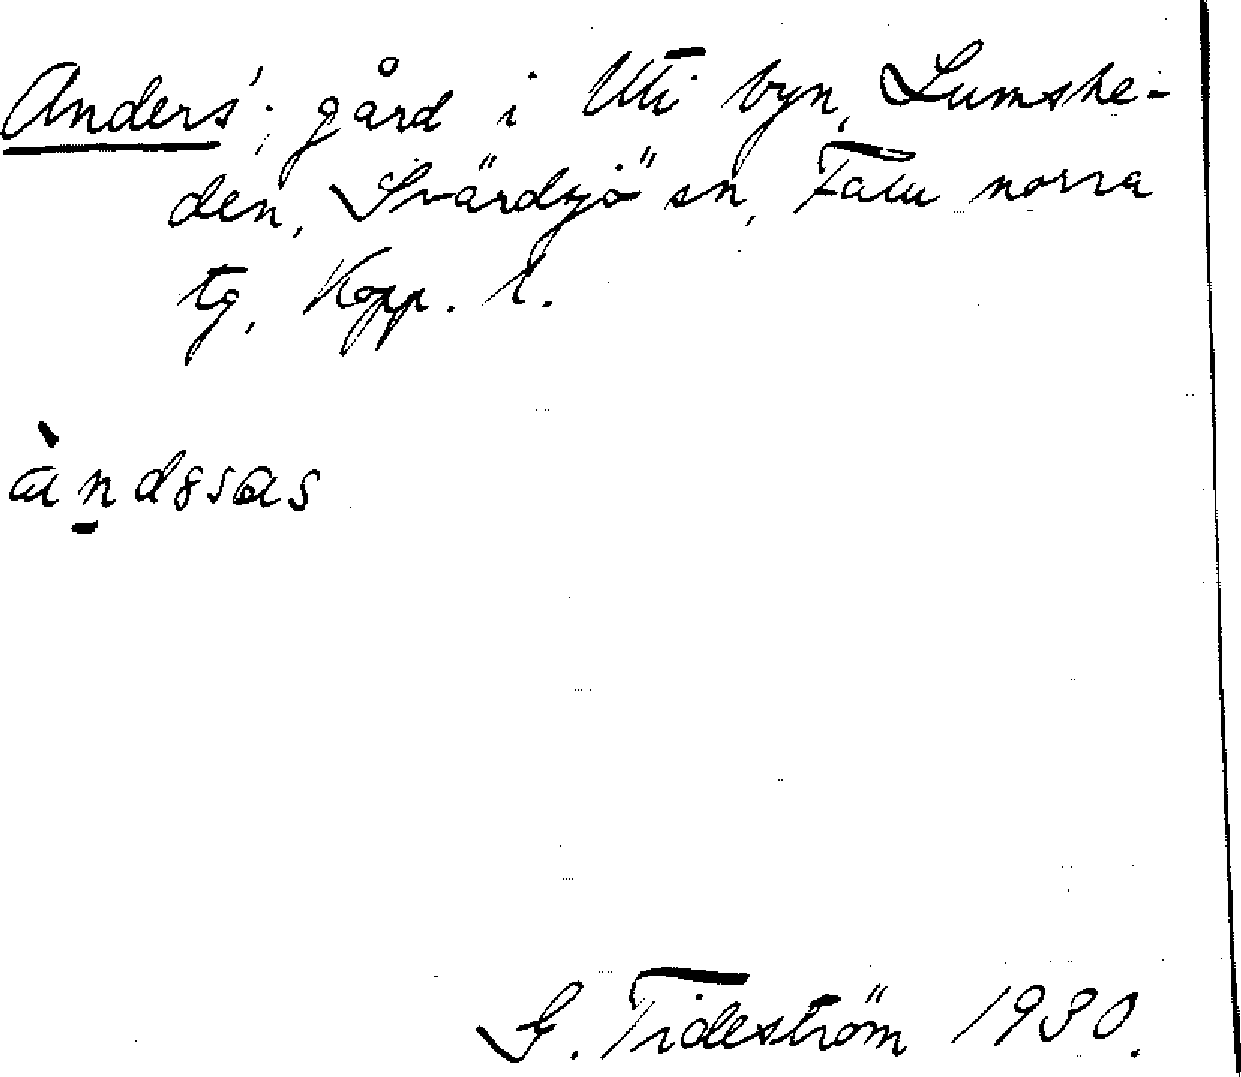 Anders'; gård i Uti byn, Lumshe-
den, Svärdsjö sn, Falu norra
tg, Kopp. l.
àndsas
G. Tideström 1930.